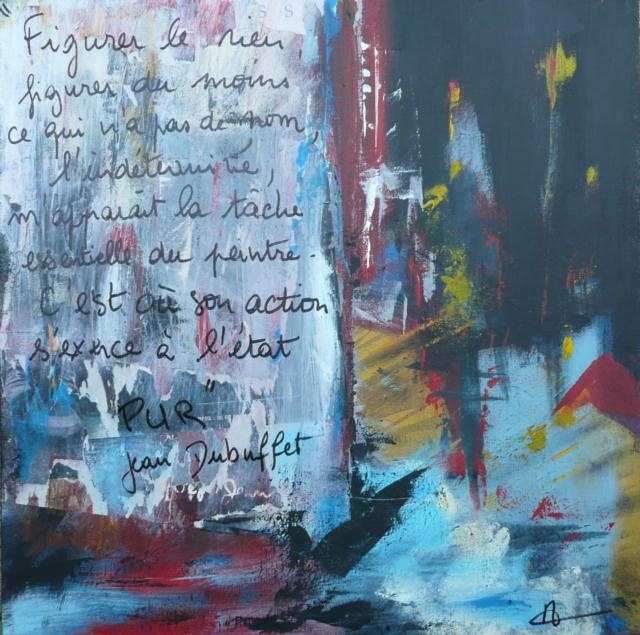 "
Figurer le rien,
figurer du moins
ce qui n'a pas de nom,
l'indéterminé,
m'apparaît la tâche
essentielle du peintre.
C'est où son action
s'exerce à l'état
PUR "
Jean Dubuffet